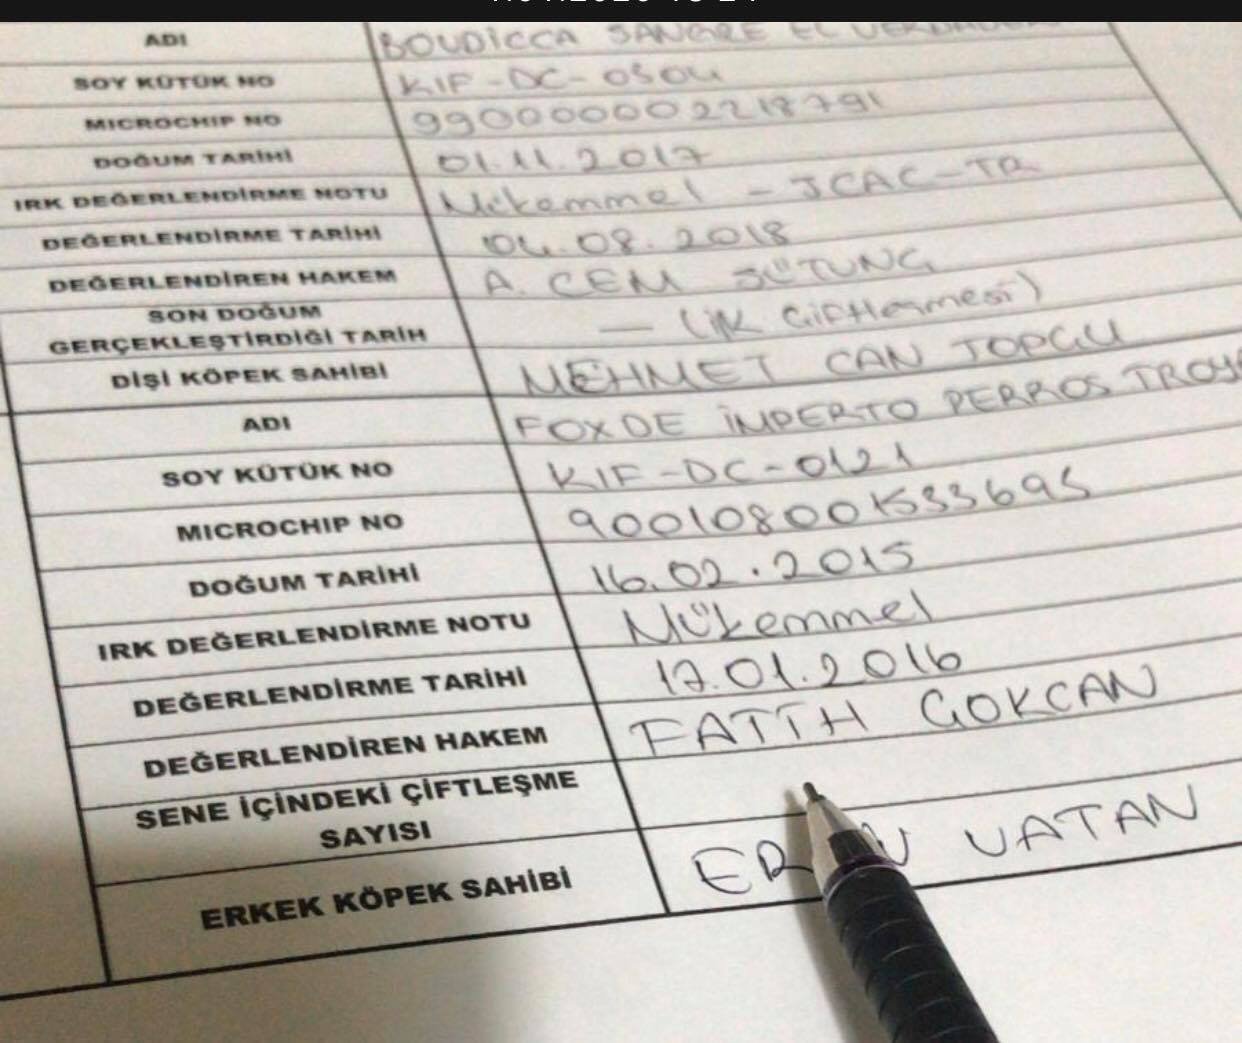 ADI BOUDICCA SANGRE EL
SOY KÜTÜK NO KIF-DC-0504
MICROCHIP NO 990000002218791
DOĞUM TARİHİ 01.11.2017
IRK DEĞERLENDİRME NOTU Mükemmel - JCAC-TR
DEĞERLENDİRME TARİHİ 04.08.2018
DEĞERLENDİREN HAKEM A. CEM SÜTUNÇ
SON DOĞUM
GERÇEKLEŞTİRDİĞİ TARİH — (ilk çiftleşmesi)
DİŞİ KÖPEK SAHİBİ MEHMET CAN TOPCU
ADI FOXDE İMPERTO PERROS
SOY KÜTÜK NO KIF-DC-0121
MICROCHIP NO 900108001533695
DOĞUM TARİHİ 16.02.2015
IRK DEĞERLENDİRME NOTU Mükemmel
DEĞERLENDİRME TARİHİ 17.01.2016
DEĞERLENDİREN HAKEM FATİH GOKCAN
SENE İÇİNDEKİ ÇİFTLEŞME
SAYISI
ERKEK KÖPEK SAHİBİ VATAN